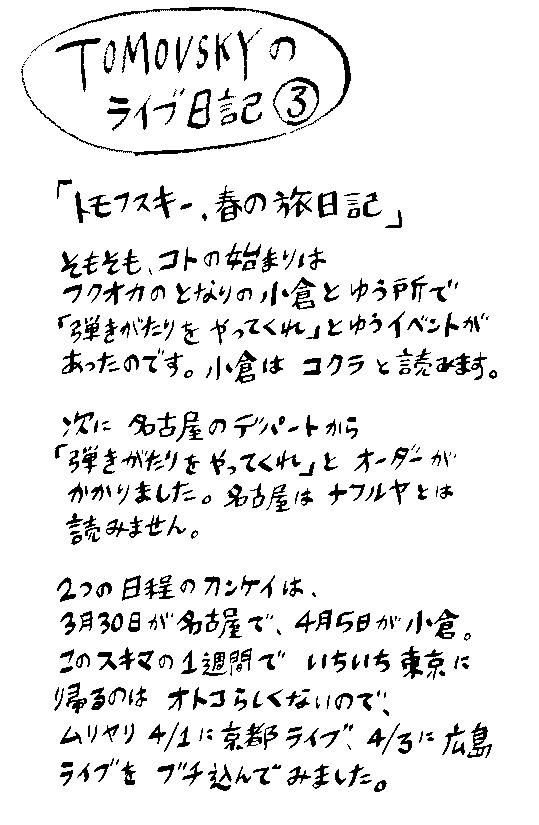 TOMOVSKYの
ライブ日記③
「トモフスキー、春の旅日記」
そもそも、コトの始まりは
フクオカのとなりの小倉とゆう所で
「弾きがたりをやってくれ」とゆうイベントが
あったのです。小倉はコクラと読みます。
次に名古屋のデパートから
「弾きがたりをやってくれ」とオーダーが
かかりました。名古屋はナフルヤとは
読みません。
2つの日程のカンケイは、
3月30日が名古屋で、4月5日が小倉。
このスキマの1週間でいちいち東京に
帰るのはオトコらしくないので、
ムリヤリ4/1に京都ライブ、4/3に広島
ライブをブチ込んでみました。